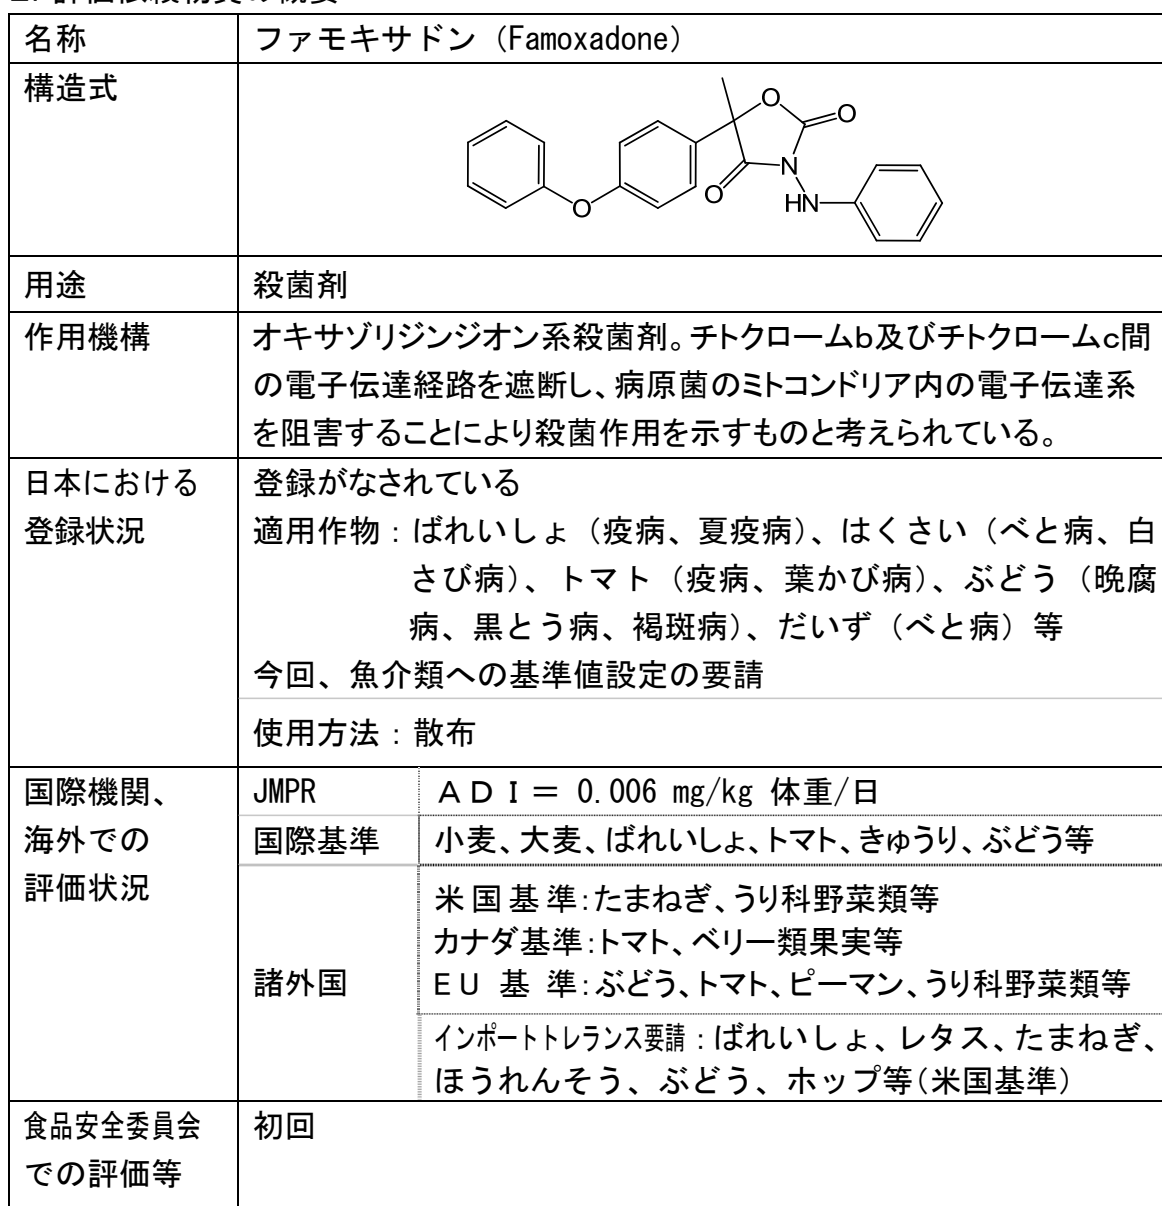 名称
ファモキサドン（Famoxadone）
構造式
O
O
N
O
HN
O
用途
殺菌剤
作用機構
オキサゾリジンジオン系殺菌剤。チトクロームb及びチトクロームc間
の電子伝達経路を遮断し、病原菌のミトコンドリア内の電子伝達系
を阻害することにより殺菌作用を示すものと考えられている。
日本における
登録状況
登録がなされている
適用作物：ばれいしょ（疫病、夏疫病）、はくさい（べと病、白
さび病）、トマト（疫病、葉かび病）、ぶどう（晩腐
病、黒とう病、褐斑病）、だいず（べと病）等
今回、魚介類への基準値設定の要請
使用方法：散布
国際機関、
海外での
評価状況
JMPR
ＡＤＩ＝ 0.006 mg/kg 体重/日
国際基準
小麦、大麦、ばれいしょ、トマト、きゅうり、ぶどう等
諸外国
米国基準：たまねぎ、うり科野菜類等
カナダ基準：トマト、ベリー類果実等
ＥＵ 基 準：ぶどう、トマト、ピーマン、うり科野菜類等
インポートトレランス要請：ばれいしょ、レタス、たまねぎ、
ほうれんそう、ぶどう、ホップ等（米国基準）
食品安全委員会
での評価等
初回